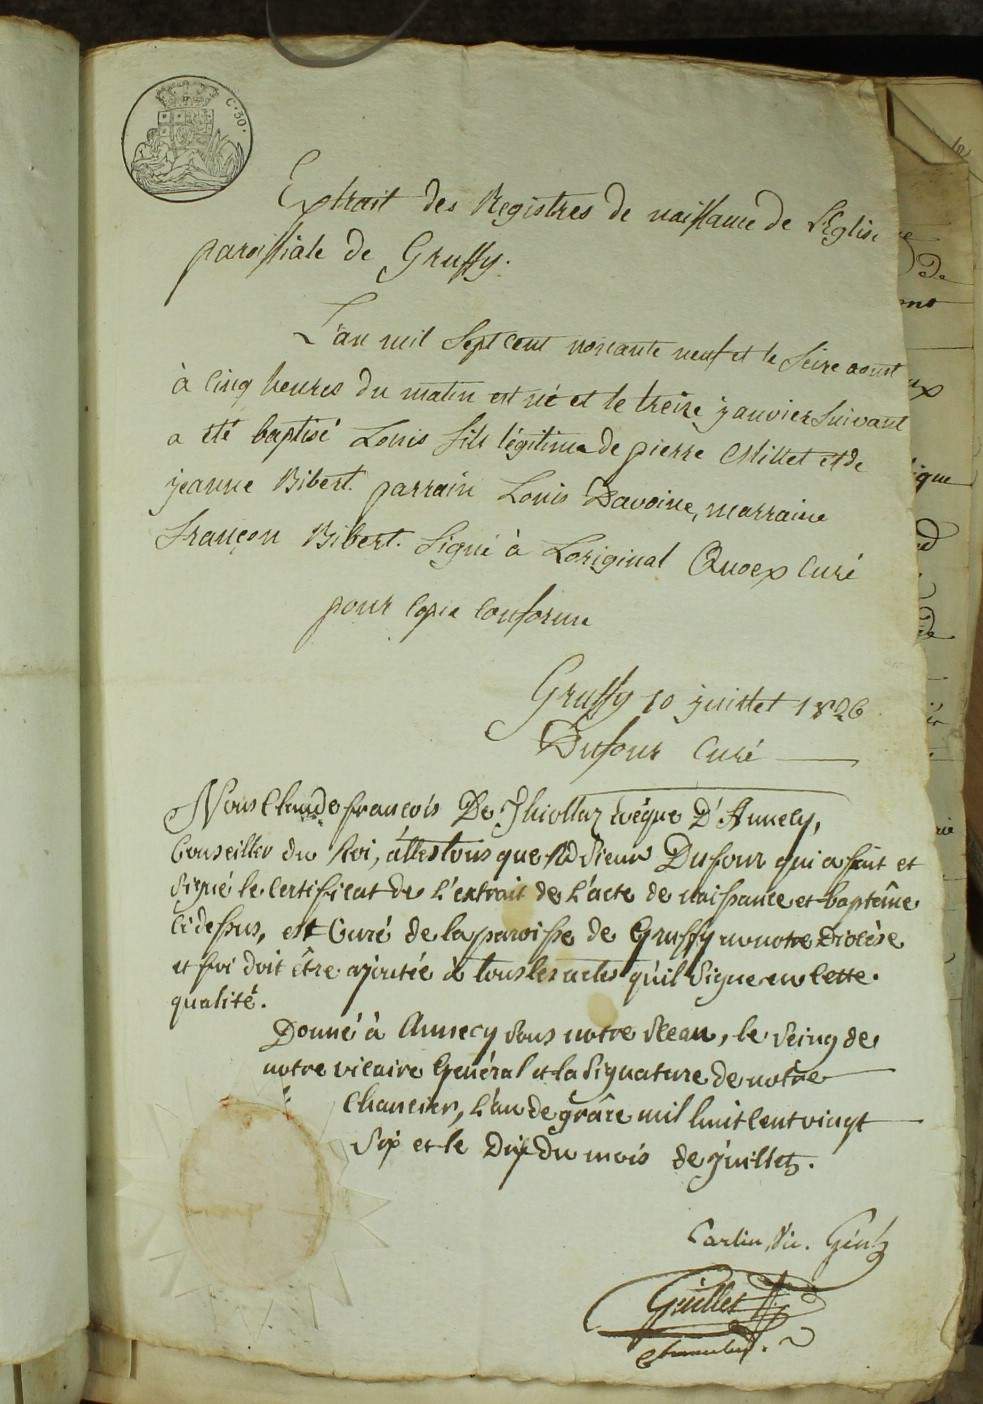 C. 30.
Extrait des Registres de naissance de l'Eglise
paroissiale de Gruffy.
L'an mil sept cent nonante neuf et le seize aoust
à cinq heures du matin est né et le treize janvier suivant
a été baptisé Louis fils légitime de pierre Millet et de
jeanne Bibert. parrain Louis Davoine, marraine
françon Bibert. Signé à Loriginal Quoex Curé
pour Copie Conforme
Gruffy 10 juillet 1826
Dufour Curé
Nous Claude françois De Thiollaz Evêque D'Annecy,
Conseiller du Roi, attestons que Rd Sieur Dufour qui a fait et
signé le Certificat de L'extrait de L'acte de naissance et baptême
Ci dessus, est Curé de la paroisse de Gruffy en notre Diocèse
et foi doit être ajoutée à tous les actes qu'il signe en Cette
qualité.
Donné à Annecy sous notre sceau, le seing de
notre vicaire Général et la signature de notre
Chancier, L'an de grâce mil huit cent vingt
six et le dix du mois de juillet.
vic. Gén
Guillet